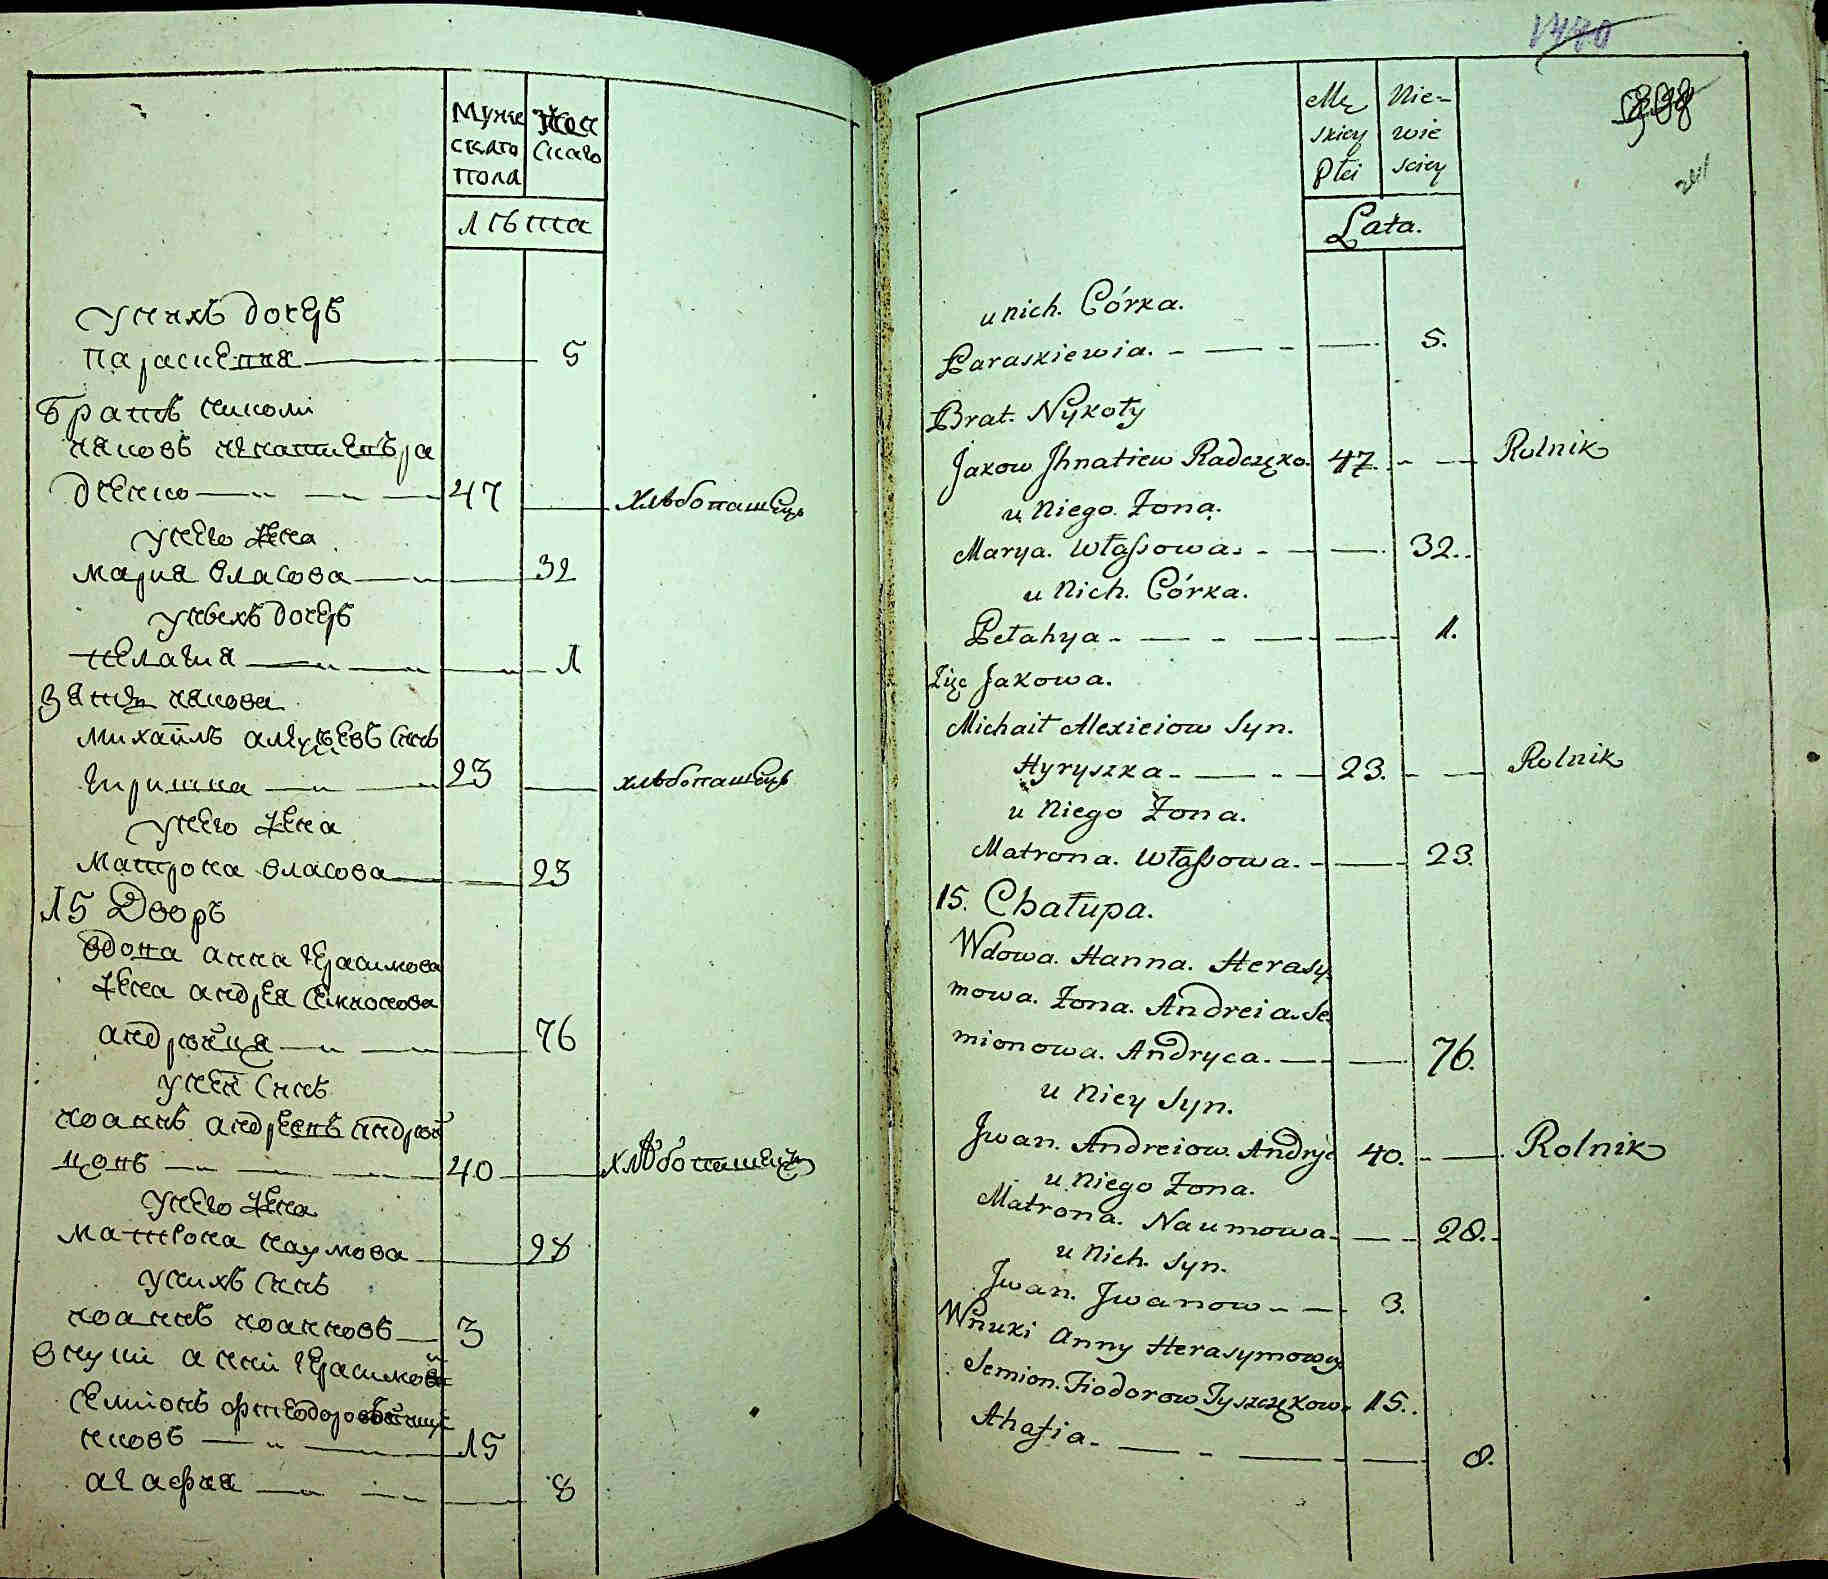 Муже
скаго
пола
Жен
скаго
лѣта
у нихъ дочерь
Параскевия 5
Братъ Николи
Іяковъ Игнатиевъ Ра
дченко 47 хлѣбопашецъ
у него жена
Мария Власова 32
у нѣхъ дочерь
Пелагия 1
Зять Іякова
Михаилъ Алеѯѣевъ синъ
Гиришка 23 хлѣбопашецъ
у него жена
Матрона Власова 23
15 Дворъ
Вдова Анна Герасимова
жена Андрея Семионова
Андрѣйця 76
у ней синъ
Иоаннъ Андреевъ Андрей
цовъ 40 хлѣбопашецъ
у него жена
Матрона Наумова 28
у нихъ синъ
Иоаннъ Иоанновъ 3
Внуки Анни Герасимовой
Семионъ Фтеодоровъ
15
Агафия 8
1440
Mę
skiey
Płci
Nie-
wie
sciey
Lata.
u nich. Córka.
Paraskiewia. 5.
Brat. Nykoły
Jakow Jhnatiew Radczęko. 47. Rolnik
u Niego. Zona.
Marya. Własowa. 32.
u Nich. Córka.
Pełahya 1.
Zięc Jakowa.
Michaił Alexieiow Syn.
Hyryszka 23. Rolnik
u Niego Zona.
Matrona. Własowa. 23.
15. Chałupa.
Wdowa. Hanna. Herasy
mowa. Zona. Andreia. Se
mionowa. Andryca. 76.
u Niey Syn.
Jwan. Andreiow. Andryc 40. Rolnik
u Niego Zona.
Matrona. Naumowa. 28.
u Nich. Syn.
Jwan. Jwanow 3.
Wnuki Anny Herasymowy
Semion. Fiodorow Tyszczękow. 15.
Ahafia 8.